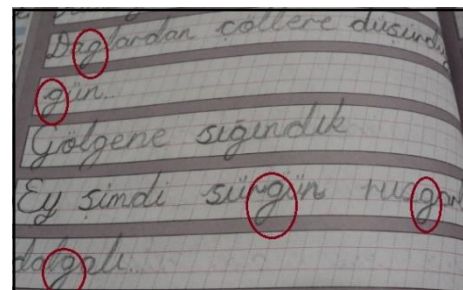 Dağlardan çöllere düşürdü
gün...
Gölgene sığındık
Ey şimdi sürgün
dalgalı...